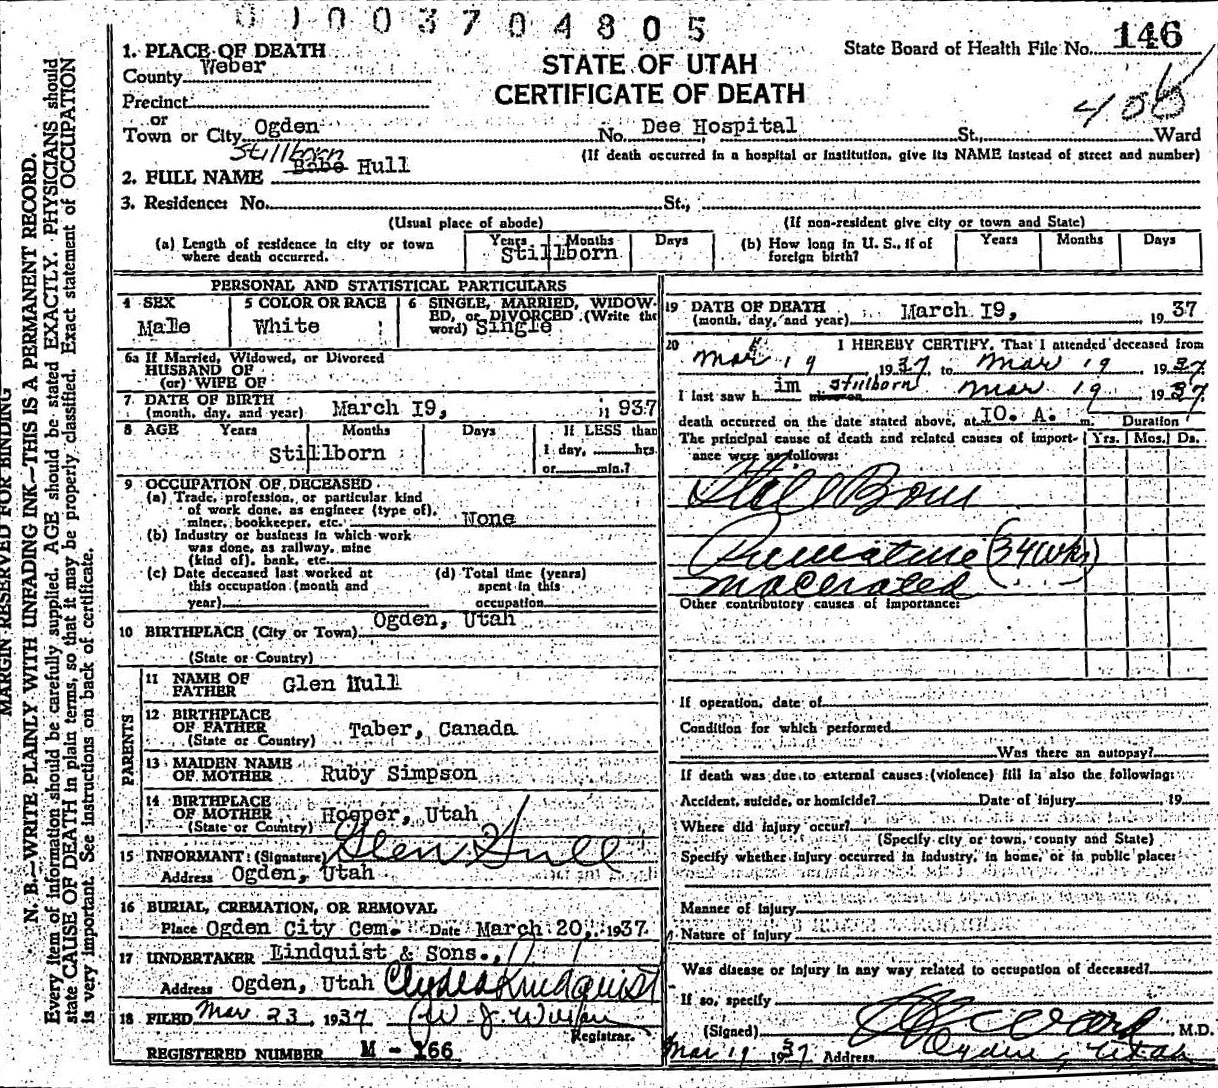 01003704805
State Board of Health File No. 146
406
STATE OF UTAH
CERTIFICATE OF DEATH
MARGIN RESERVED FOR BINDING
N. B.—WRITE PLAINLY WITH UNFADING INK—THIS IS A PERMANENT RECORD.
Every item of information should be carefully supplied. AGE should be stated EXACTLY. PHYSICIANS should
state CAUSE OF DEATH in plain terms, so that it may be properly classified. Exact statement of OCCUPATION
is very important. See instructions on back of certificate.
1. PLACE OF DEATH
County Weber
Precinct
or
Town or City Ogden No. Dee Hospital St. Ward
(If death occurred in a hospital or institution, give its NAME instead of street and number)
Stillborn
2. FULL NAME Babe Hull
3. Residence: No. St.,
(Usual place of abode) (If non-resident give city or town and State)
(a) Length of residence in city or town where death occurred. Years Months Days
Stillborn
(b) How long in U. S., if of foreign birth? Years Months Days
PERSONAL AND STATISTICAL PARTICULARS
4 SEX
Male
5 COLOR OR RACE
White
6 SINGLE, MARRIED, WIDOW-
ED, or DIVORCED (Write the
word) Single
6a If Married, Widowed, or Divorced
HUSBAND OF
(or) WIFE OF
7 DATE OF BIRTH
(month, day, and year) March I9, 1937
8 AGE Years Months Days If LESS than
Stillborn 1 day, hrs
or min.?
9 OCCUPATION OF DECEASED
(a) Trade, profession, or particular kind
of work done, as engineer (type of),
miner, bookkeeper, etc. None
(b) Industry or business in which work
was done, as railway, mine
(kind of), bank, etc.
(c) Date deceased last worked at
this occupation (month and
year)
(d) Total time (years)
spent in this
occupation
10 BIRTHPLACE (City or Town) Ogden, Utah
(State or Country)
PARENTS
11 NAME OF
FATHER Glen Hull
12 BIRTHPLACE
OF FATHER Taber, Canada
(State or Country)
13 MAIDEN NAME
OF MOTHER Ruby Simpson
14 BIRTHPLACE
OF MOTHER Hooper, Utah
(State or Country)
15 INFORMANT: (Signature) Glen Hull
Address Ogden, Utah
16 BURIAL, CREMATION, OR REMOVAL
Place Ogden City Cem. Date March 20, 1937
17 UNDERTAKER Lindquist & Sons.,
Address Ogden, Utah Clyde Lindquist
18 FILED Mar 23, 1937 W. J. Wilson
Registrar.
REGISTERED NUMBER M - 166
19 DATE OF DEATH
(month, day, and year) March I9, 1937
20 I HEREBY CERTIFY, That I attended deceased from
Mar 19 1937, to Mar 19 1937
I last saw him stillborn Mar 19 1937
death occurred on the date stated above, at IO. A. m. Duration
The principal cause of death and related causes of import-
ance were as follows: Yrs. Mos. Ds.
Still Born
Premature (34 wks)
macerated
Other contributory causes of importance:
If operation, date of
Condition for which performed
Was there an autopsy?
If death was due to external causes (violence) fill in also the following:
Accident, suicide, or homicide? Date of injury 19
Where did injury occur?
(Specify city or town, county and State)
Specify whether injury occurred in industry, in home, or in public place:
Manner of injury
Nature of injury
Was disease or injury in any way related to occupation of deceased?
If so, specify
(Signed) Ward M.D.
Mar 19 1937 Address Ogden, Utah